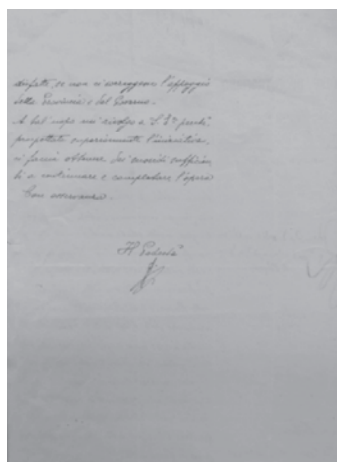 difetti, se non si sorreggono l'appoggio
della Provincia e del Governo.
A tal uopo mi rivolgo a S. S.ª perchè
prospettato superiormente l'iniziativa,
si faccia ottenere dei sussidi sufficien
ti a continuare e completare l'opera
Con osservanza.
Il Podestà